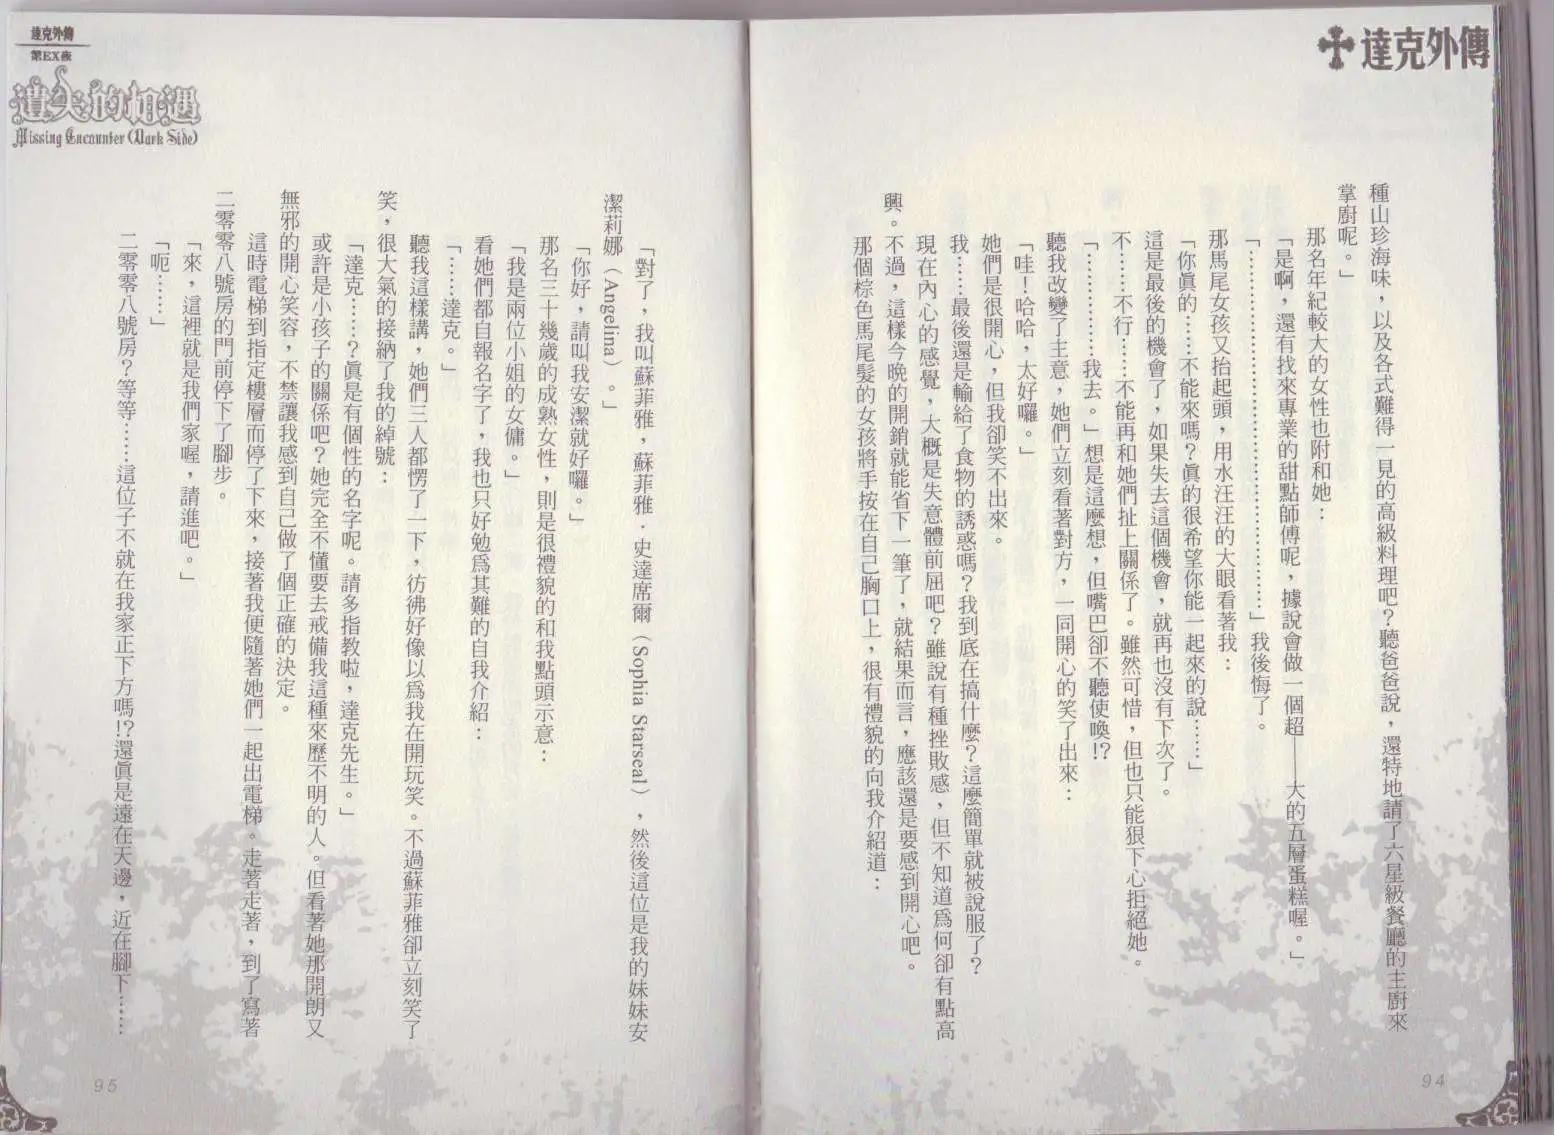 達克外傳
種山珍海味，以及各式難得一見的高級料理吧？聽爸爸說，還特地請了六星級餐廳的主廚來
掌廚呢。」
那名年紀較大的女性也附和她：
「是啊，還有找來專業的甜點師傅呢，據說會做一個超——大的五層蛋糕喔。」
「………………………………………」我後悔了。
那馬尾女孩又抬起頭，用水汪汪的大眼看著我：
「你真的……不能來嗎？真的很希望你能一起來的說……」
這是最後的機會了，如果失去這個機會，就再也沒有下次了。
不……不行……不能再和她們扯上關係了。雖然可惜，但也只能狠下心拒絕她。
「……………我去。」想是這麼想，但嘴巴卻不聽使喚!?
聽我改變了主意，她們立刻看著對方，一同開心的笑了出來：
「哇！哈哈，太好囉。」
她們是很開心，但我卻笑不出來。
我……最後還是輸給了食物的誘惑嗎？我到底在搞什麼？這麼簡單就被說服了？
現在內心的感覺，大概是失意體前屈吧？雖說有種挫敗感，但不知道為何卻有點高
興。不過，這樣今晚的開銷就能省下一筆了，就結果而言，應該還是要感到開心吧。
那個棕色馬尾髮的女孩將手按在自己胸口上，很有禮貌的向我介紹道：
94
達克外傳
第EX夜
遺失的相遇
Missing Encounter (Dark Side)
「對了，我叫蘇菲雅，蘇菲雅．史達席爾（Sophia Starseal），然後這位是我的妹妹安
潔莉娜（Angelina）。」
「你好，請叫我安潔就好囉。」
那名三十幾歲的成熟女性，則是很禮貌的和我點頭示意：
「我是兩位小姐的女傭。」
看她們都自報名字了，我也只好勉為其難的自我介紹：
「……達克。」
聽我這樣講，她們三人都愣了一下，彷彿好像以為我在開玩笑。不過蘇菲雅卻立刻笑了
笑，很大氣的接納了我的綽號：
「達克……？真是有個性的名字呢。請多指教啦，達克先生。」
或許是小孩子的關係吧？她完全不懂要去戒備我這種來歷不明的人。但看著她那開朗又
無邪的開心笑容，不禁讓我感到自己做了個正確的決定。
這時電梯到指定樓層而停了下來，接著我便隨著她們一起出電梯。走著走著，到了寫著
二零零八號房的門前停下了腳步。
「來，這裡就是我們家喔，請進吧。」
「呃……」
二零零八號房？等等……這位子不就在我家正下方嗎!?還真是遠在天邊，近在腳下……
95